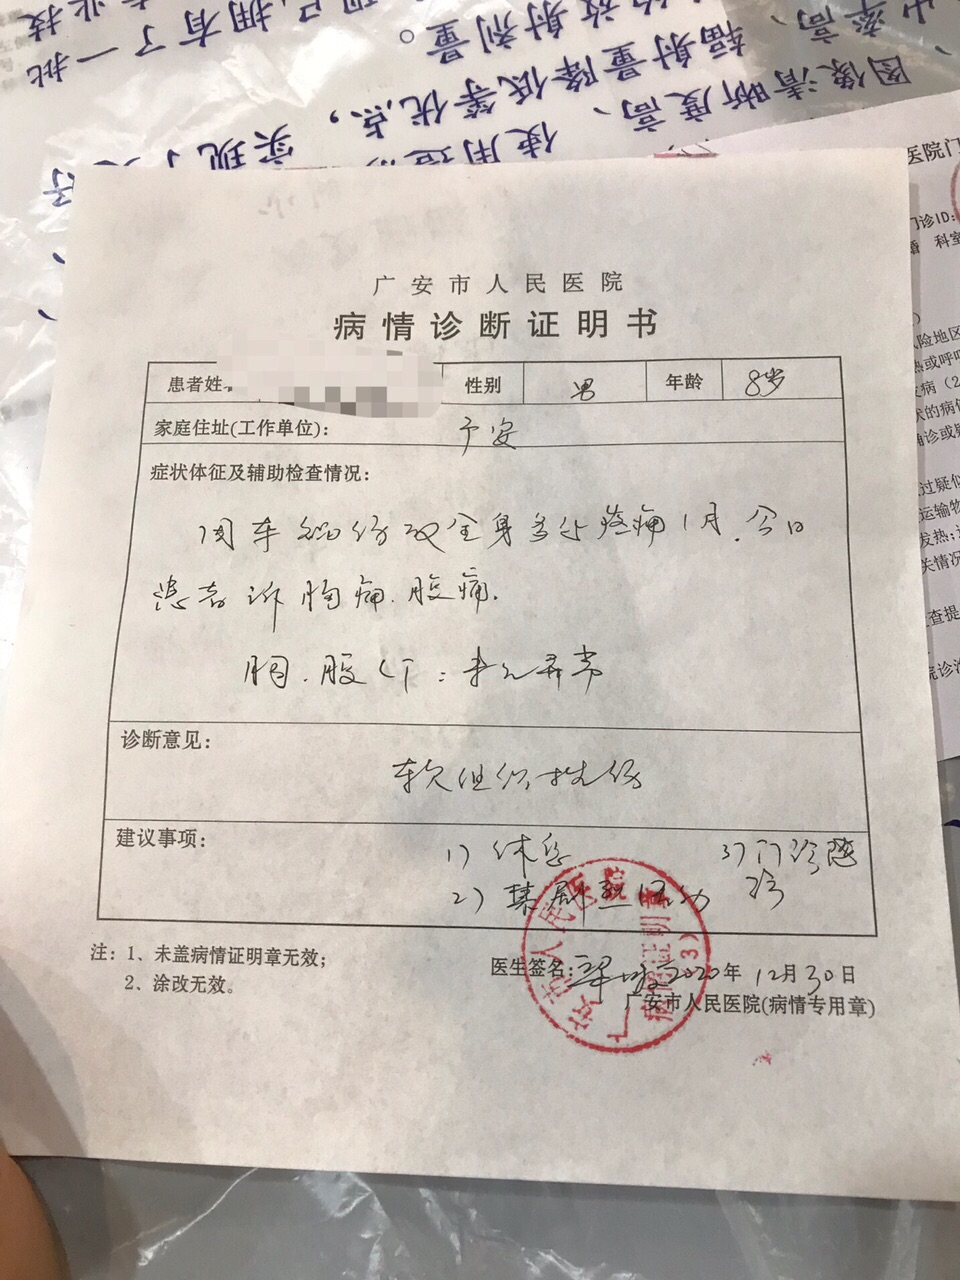 批
一
了
有
拥
量。
剂
射
放
实现了
点，
优
等
低
降
量
射
辐
使用
高、
度
晰
清
像
图
高、
率
医院门
门诊ID:
科室
险地区
热或呼
发病（2
状的病
确诊或
过疑似
运输物
发热;
关情况
查提
院诊
广安市人民医院
病情诊断证明书
患者姓
性别 男 年龄 8岁
家庭住址(工作单位): 广安
症状体征及辅助检查情况:
因车祸伤致全身多处疼痛1月.今日
患者诉胸痛.腹痛.
胸.腹CT:未见异常
诊断意见:
软组织挫伤
建议事项:
1)休息 3)门诊随
2)禁剧烈活动 诊
注: 1、未盖病情证明章无效;
2、涂改无效。
医生签名: 2020年12月30日
广安市人民医院(病情专用章)
广安市人民医院
病情证明章
(3)